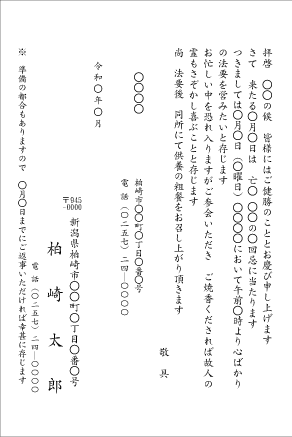 拝啓 〇〇の候 皆様にはご健勝のこととお慶び申し上げます
さて 来たる〇月〇日は 亡〇〇〇の〇回忌に当たります
つきましては〇月〇日(〇曜日)〇〇〇〇において午前〇時より心ばかり
の法要を営みたいと存じます
お忙しい中を恐れ入りますがご参会いただき ご焼香くだされば故人の
霊もさぞかし喜ぶことと存じます
尚 法要後 同所にて供養の粗餐をお召し上がり頂きます
敬具
〇〇〇〇
柏崎市〇〇町〇丁目〇番〇号
電話(〇二五七)二四―〇〇〇〇
令和〇年〇月
〒945-0000
新潟県柏崎市〇〇町〇丁目〇番〇号
柏崎太郎
電話(〇二五七)二四―〇〇〇〇
※ 準備の都合もありますので 〇月〇日までにご返事いただければ幸甚に存じます